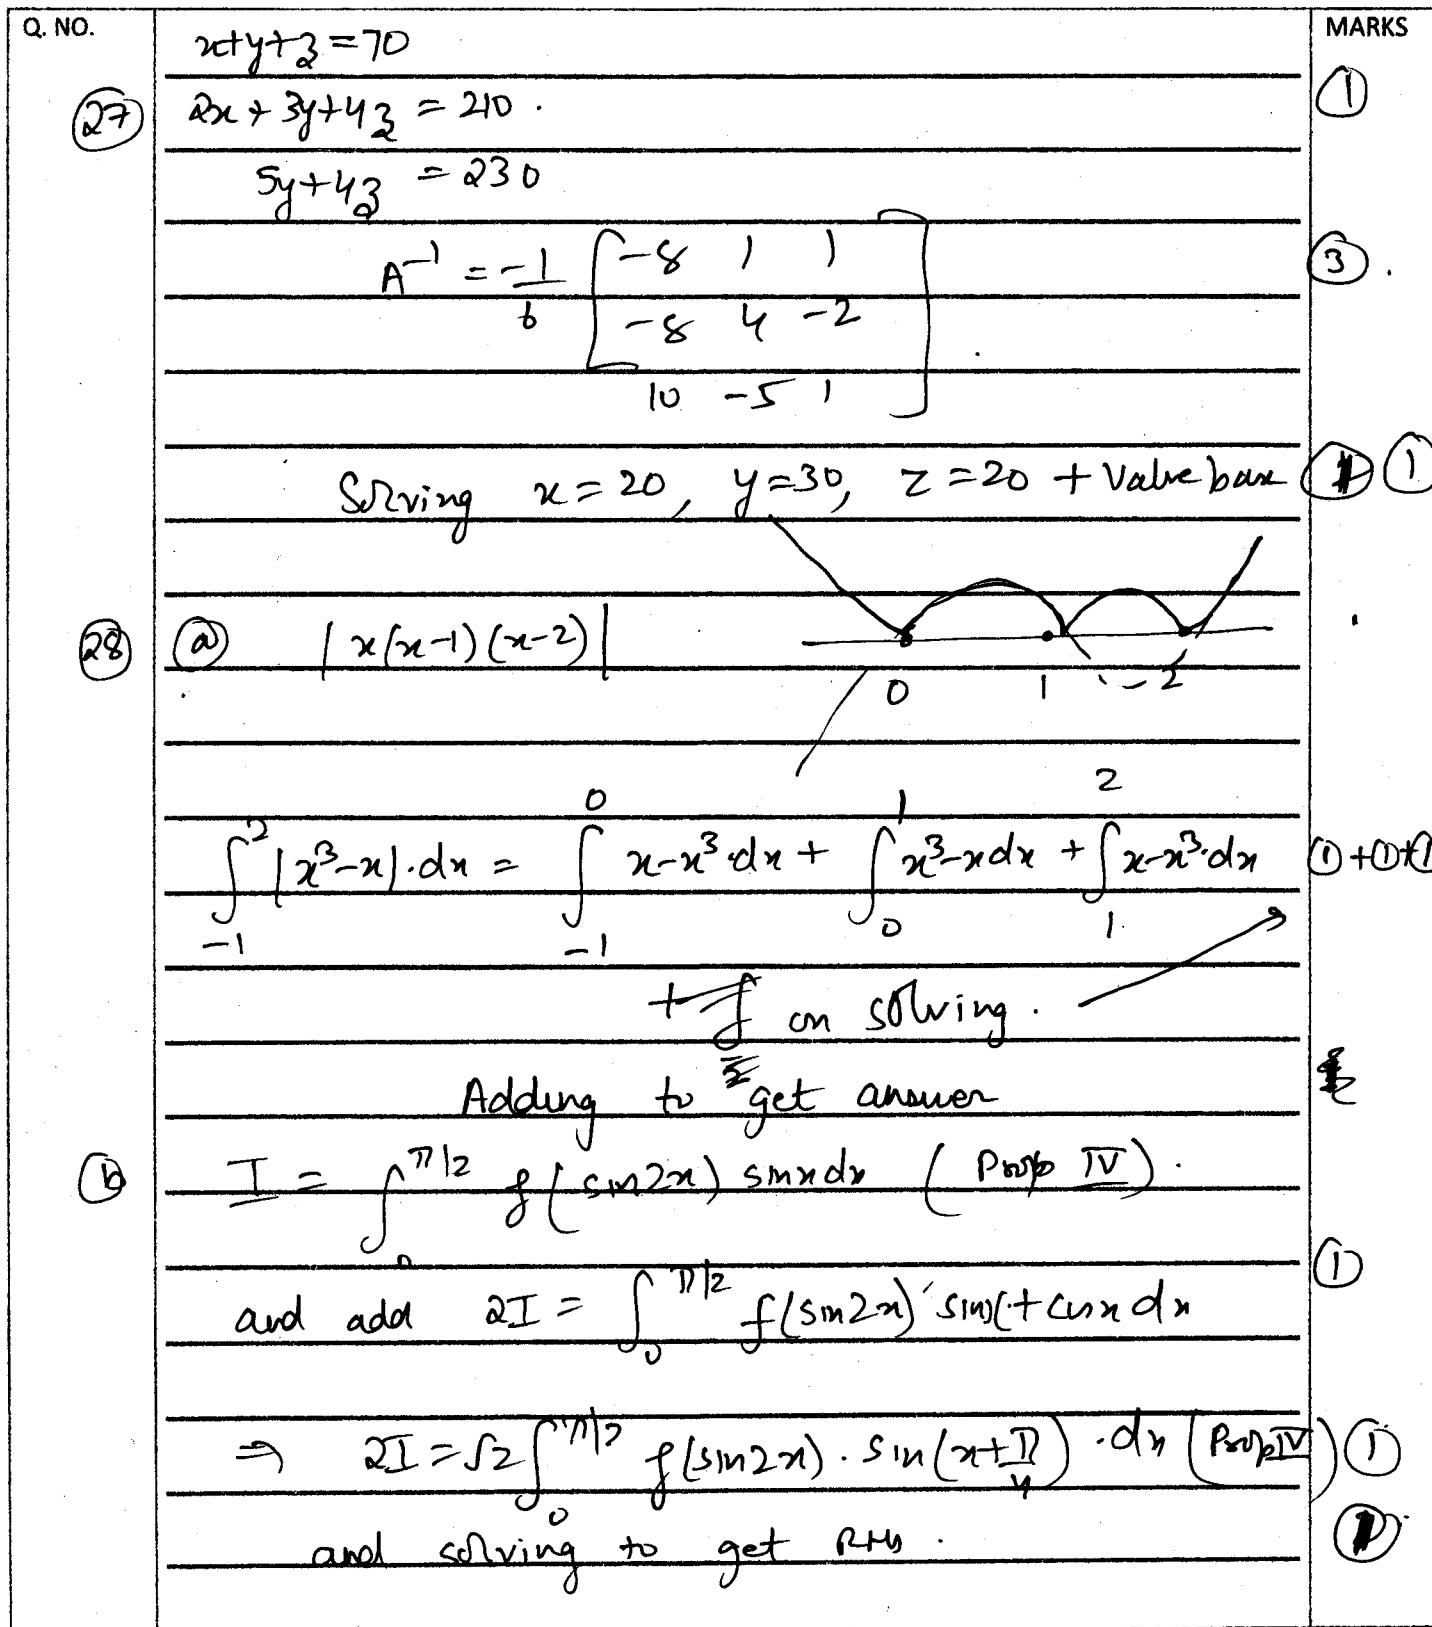 Q. NO. MARKS
x+y+z=70
(27) 2x + 3y+4z = 210. (1)
5y+4z = 230
A^-1 = -1/6 [ -8 1 1 (3).
-8 4 -2
10 -5 1 ]
Solving x = 20, y=30, z = 20 + Value base (1)
(28) (a) | x(x-1)(x-2) |
0 1 2
∫_-1^2 |x³-x|.dx = ∫_-1^0 x-x³.dx + ∫_0^1 x³-xdx + ∫_1^2 x-x³.dx (1)+(1)+(1)
on solving.
Adding to get answer
(b) I = ∫_0^π/2 f(sin2x) sinxdx (Prop IV).
(1)
and add 2I = ∫_0^π/2 f(sin2x) sinx+cosx dx
⇒ 2I = √2 ∫_0^π/2 f(sin2x). sin(x+π/4) .dx (Prop IV) (1)
and solving to get RHS. (1)